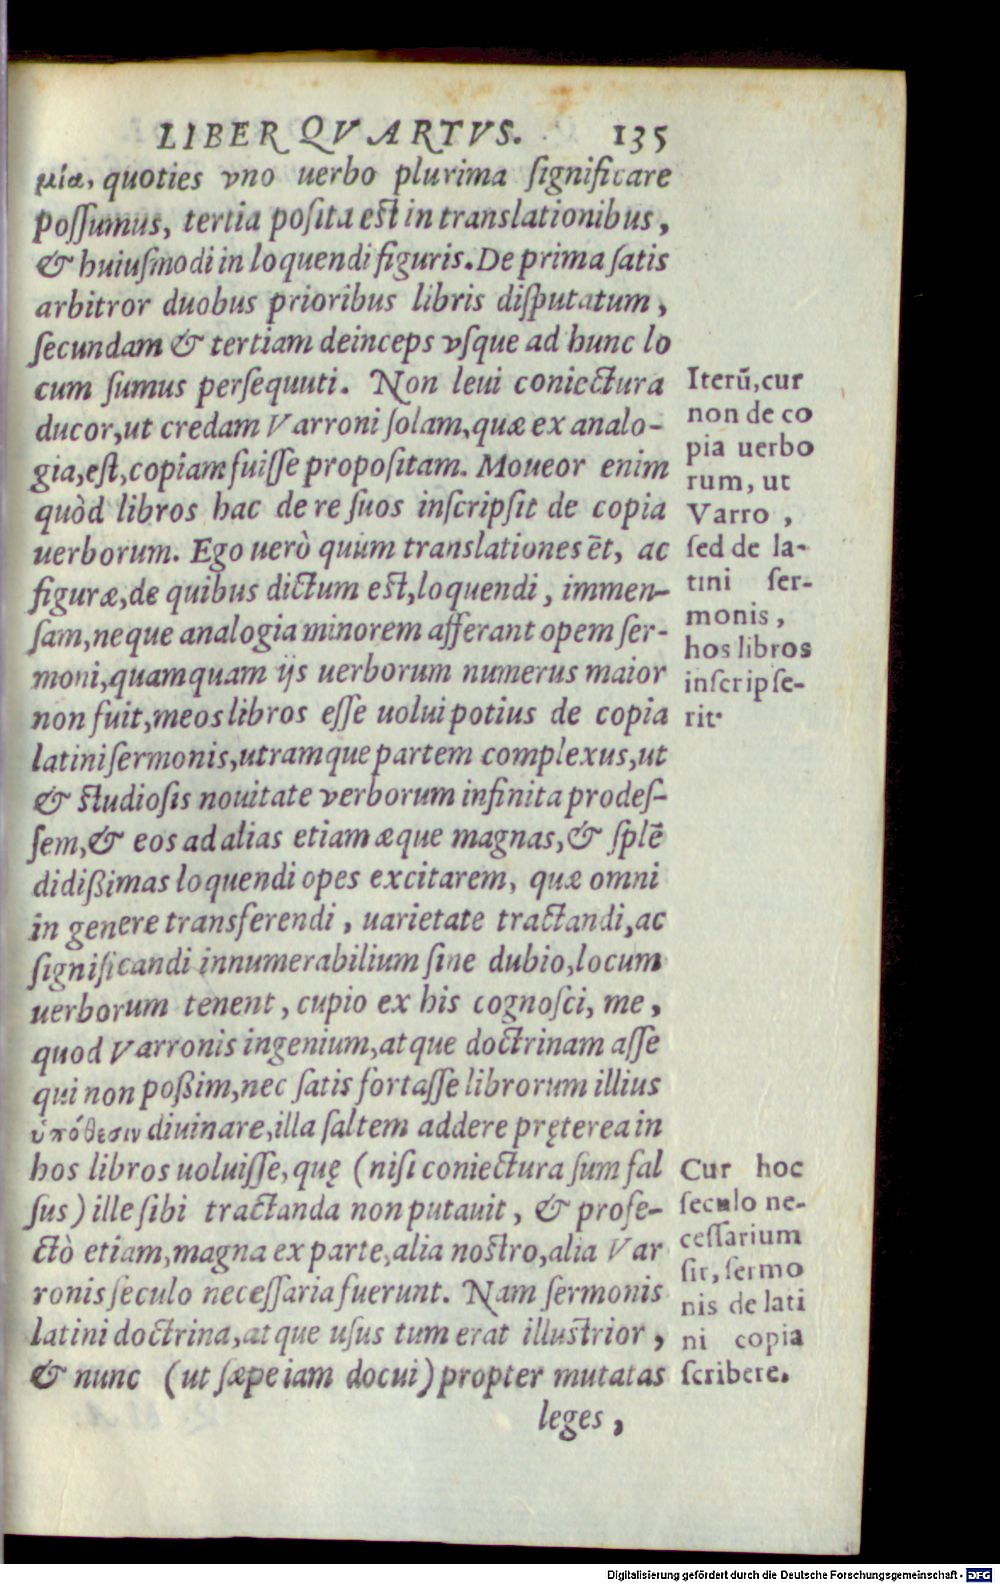 LIBER QVARTVS. 135
μία, quoties vno uerbo plurima ſignificare
poſſumus, tertia poſita eſt in translationibus,
& huiuſmodi in loquendi figuris. De prima ſatis
arbitror duobus prioribus libris diſputatum,
ſecundam & tertiam deinceps vſque ad hunc lo
cum ſumus perſequuti. Non leui coniectura
ducor, ut credam Varroni ſolam, quæ ex analo-
gia, eſt, copiam fuiſſe propoſitam. Moueor enim
quòd libros hac de re ſuos inſcripſit de copia
uerborum. Ego uerò quum translationes ēt, ac
figuræ, de quibus dictum eſt, loquendi, immen-
ſam, neque analogia minorem afferant opem ſer-
moni, quamquam ijs uerborum numerus maior
non fuit, meos libros eſſe uolui potius de copia
latini ſermonis, utramque partem complexus, ut
& ſtudioſis nouitate verborum infinita prodeſ-
ſem, & eos ad alias etiam æque magnas, & ſplē
didißimas loquendi opes excitarem, quæ omni
in genere transferendi, uarietate tractandi, ac
ſignificandi innumerabilium ſine dubio, locum
uerborum tenent, cupio ex his cognoſci, me,
quod Varronis ingenium, atque doctrinam aſſe
qui non poßim, nec ſatis fortaſſe librorum illius
ὑπόθεσιν diuinare, illa ſaltem addere pręterea in
hos libros uoluiſſe, quę (niſi coniectura ſum fal
ſus) ille ſibi tractanda non putauit, & profe-
ctò etiam, magna ex parte, alia noſtro, alia Var
ronis ſeculo neceſſaria fuerunt. Nam ſermonis
latini doctrina, atque uſus tum erat illuſtrior,
& nunc (ut ſæpe iam docui) propter mutatas
leges,
Iterū, cur
non de co
pia uerbo
rum, ut
Varro,
ſed de la-
tini ſer-
monis,
hos libros
inſcripſe-
rit.
Cur hoc
ſeculo ne-
ceſſarium
ſit, ſermo
nis de lati
ni copia
ſcribere.
Digitalisierung gefördert durch die Deutsche Forschungsgemeinschaft - DFG